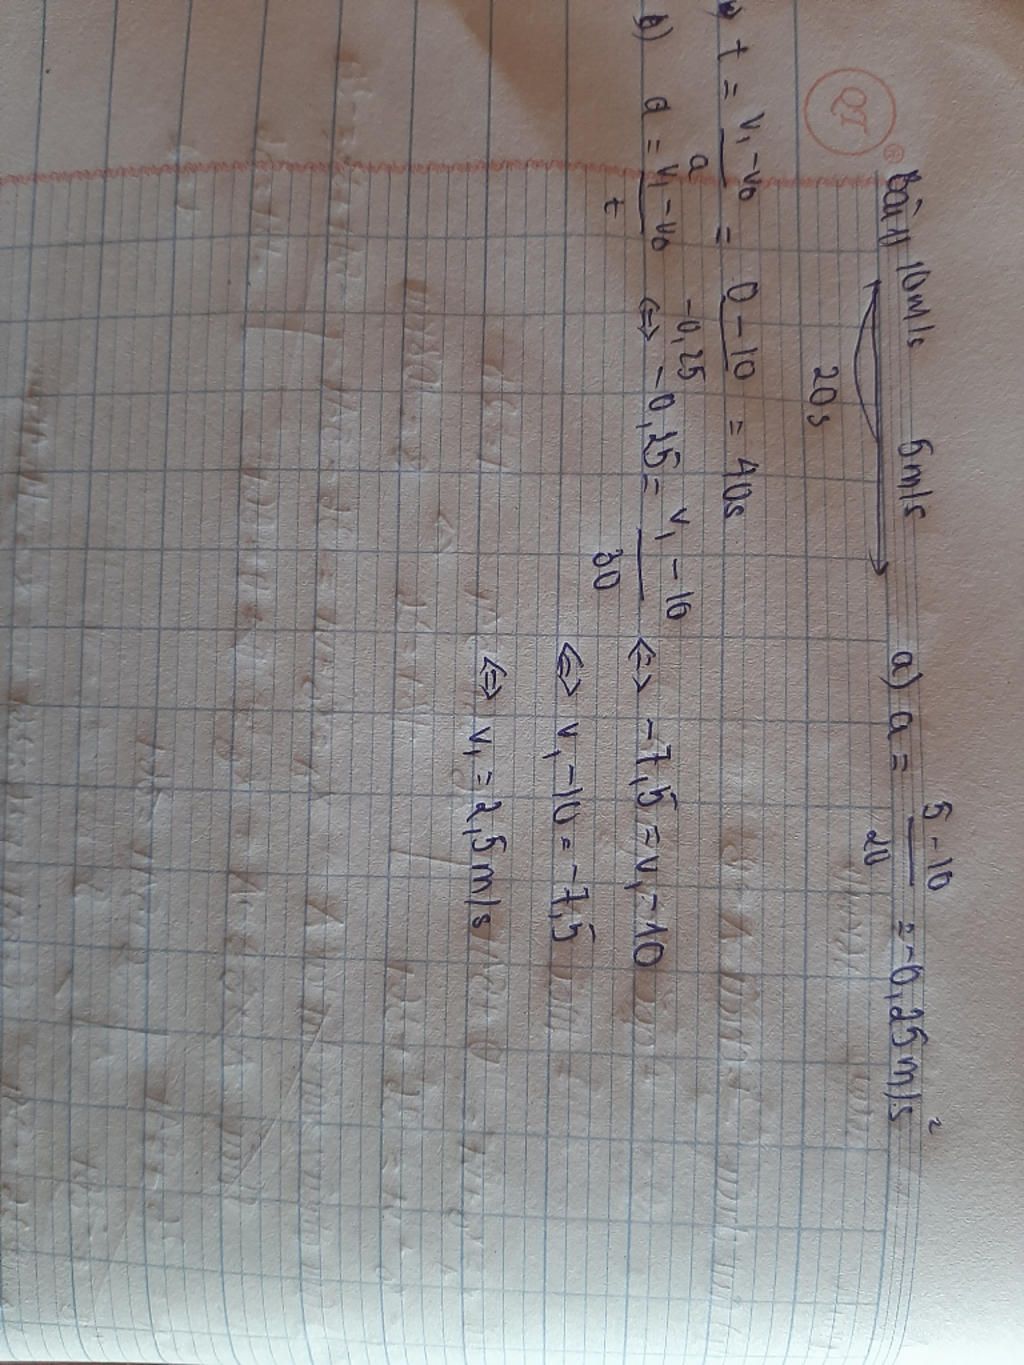 QT ®
Bài 1 10m/s 5m/s a) a = 5 - 10 / 20 = -0,25 m/s²
20s
t = v₁ - v₀ / a = 0 - 10 / -0,25 = 40s
b) a = v₁ - v₀ / t ⇔ -0,25 = v₁ - 10 / 30 ⇔ -7,5 = v₁ - 10
⇔ v₁ - 10 = -7,5
⇔ v₁ = 2,5 m/s